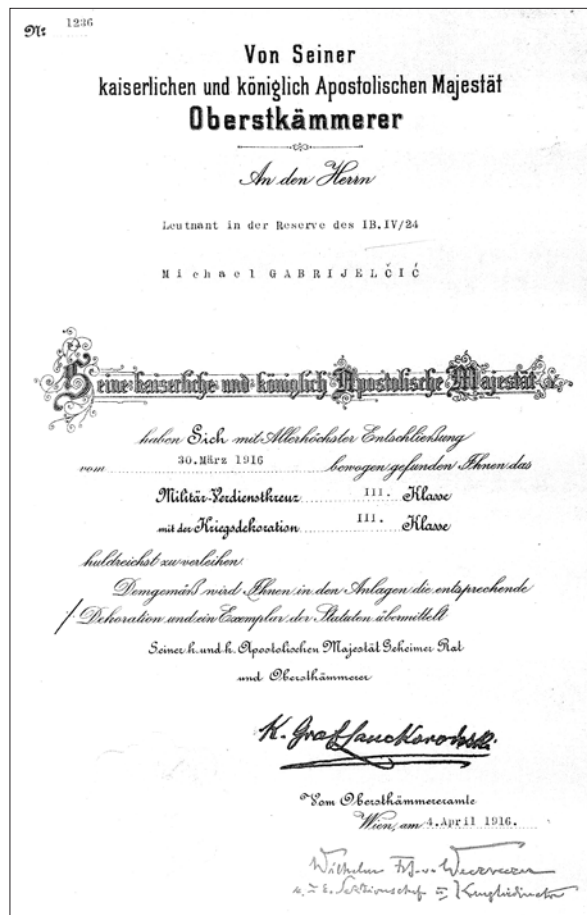 №: 1236
Von Seiner
kaiserlichen und königlich Apostolischen Majestät
Oberstkämmerer
An den Herrn
Leutnant in der Reserve des IB.IV/24
Michael GABRIJELČIĆ
Seine kaiserliche und königlich Apostolische Majestät
haben Sich mit Allerhöchster Entschließung
vom 30.März 1916 bewogen gefunden Ihnen das
Militär-Verdienstkreuz III. Klasse
mit der Kriegsdekoration III. Klasse
huldreichst zu verleihen.
Demgemäß wird Ihnen in den Anlagen die entsprechende
/. Dekoration und ein Exemplar der Statuten übermittelt
Seiner k. und k. Apostolischen Majestät Geheimer Rat
und Oberstkämmerer
K. Graf Lanckoroński
Vom Oberstkämmereramte
Wien, am 4.April 1916.
Wilhelm Frh. v.
k. u. k. Sektionschef u. Kanzleidirektor